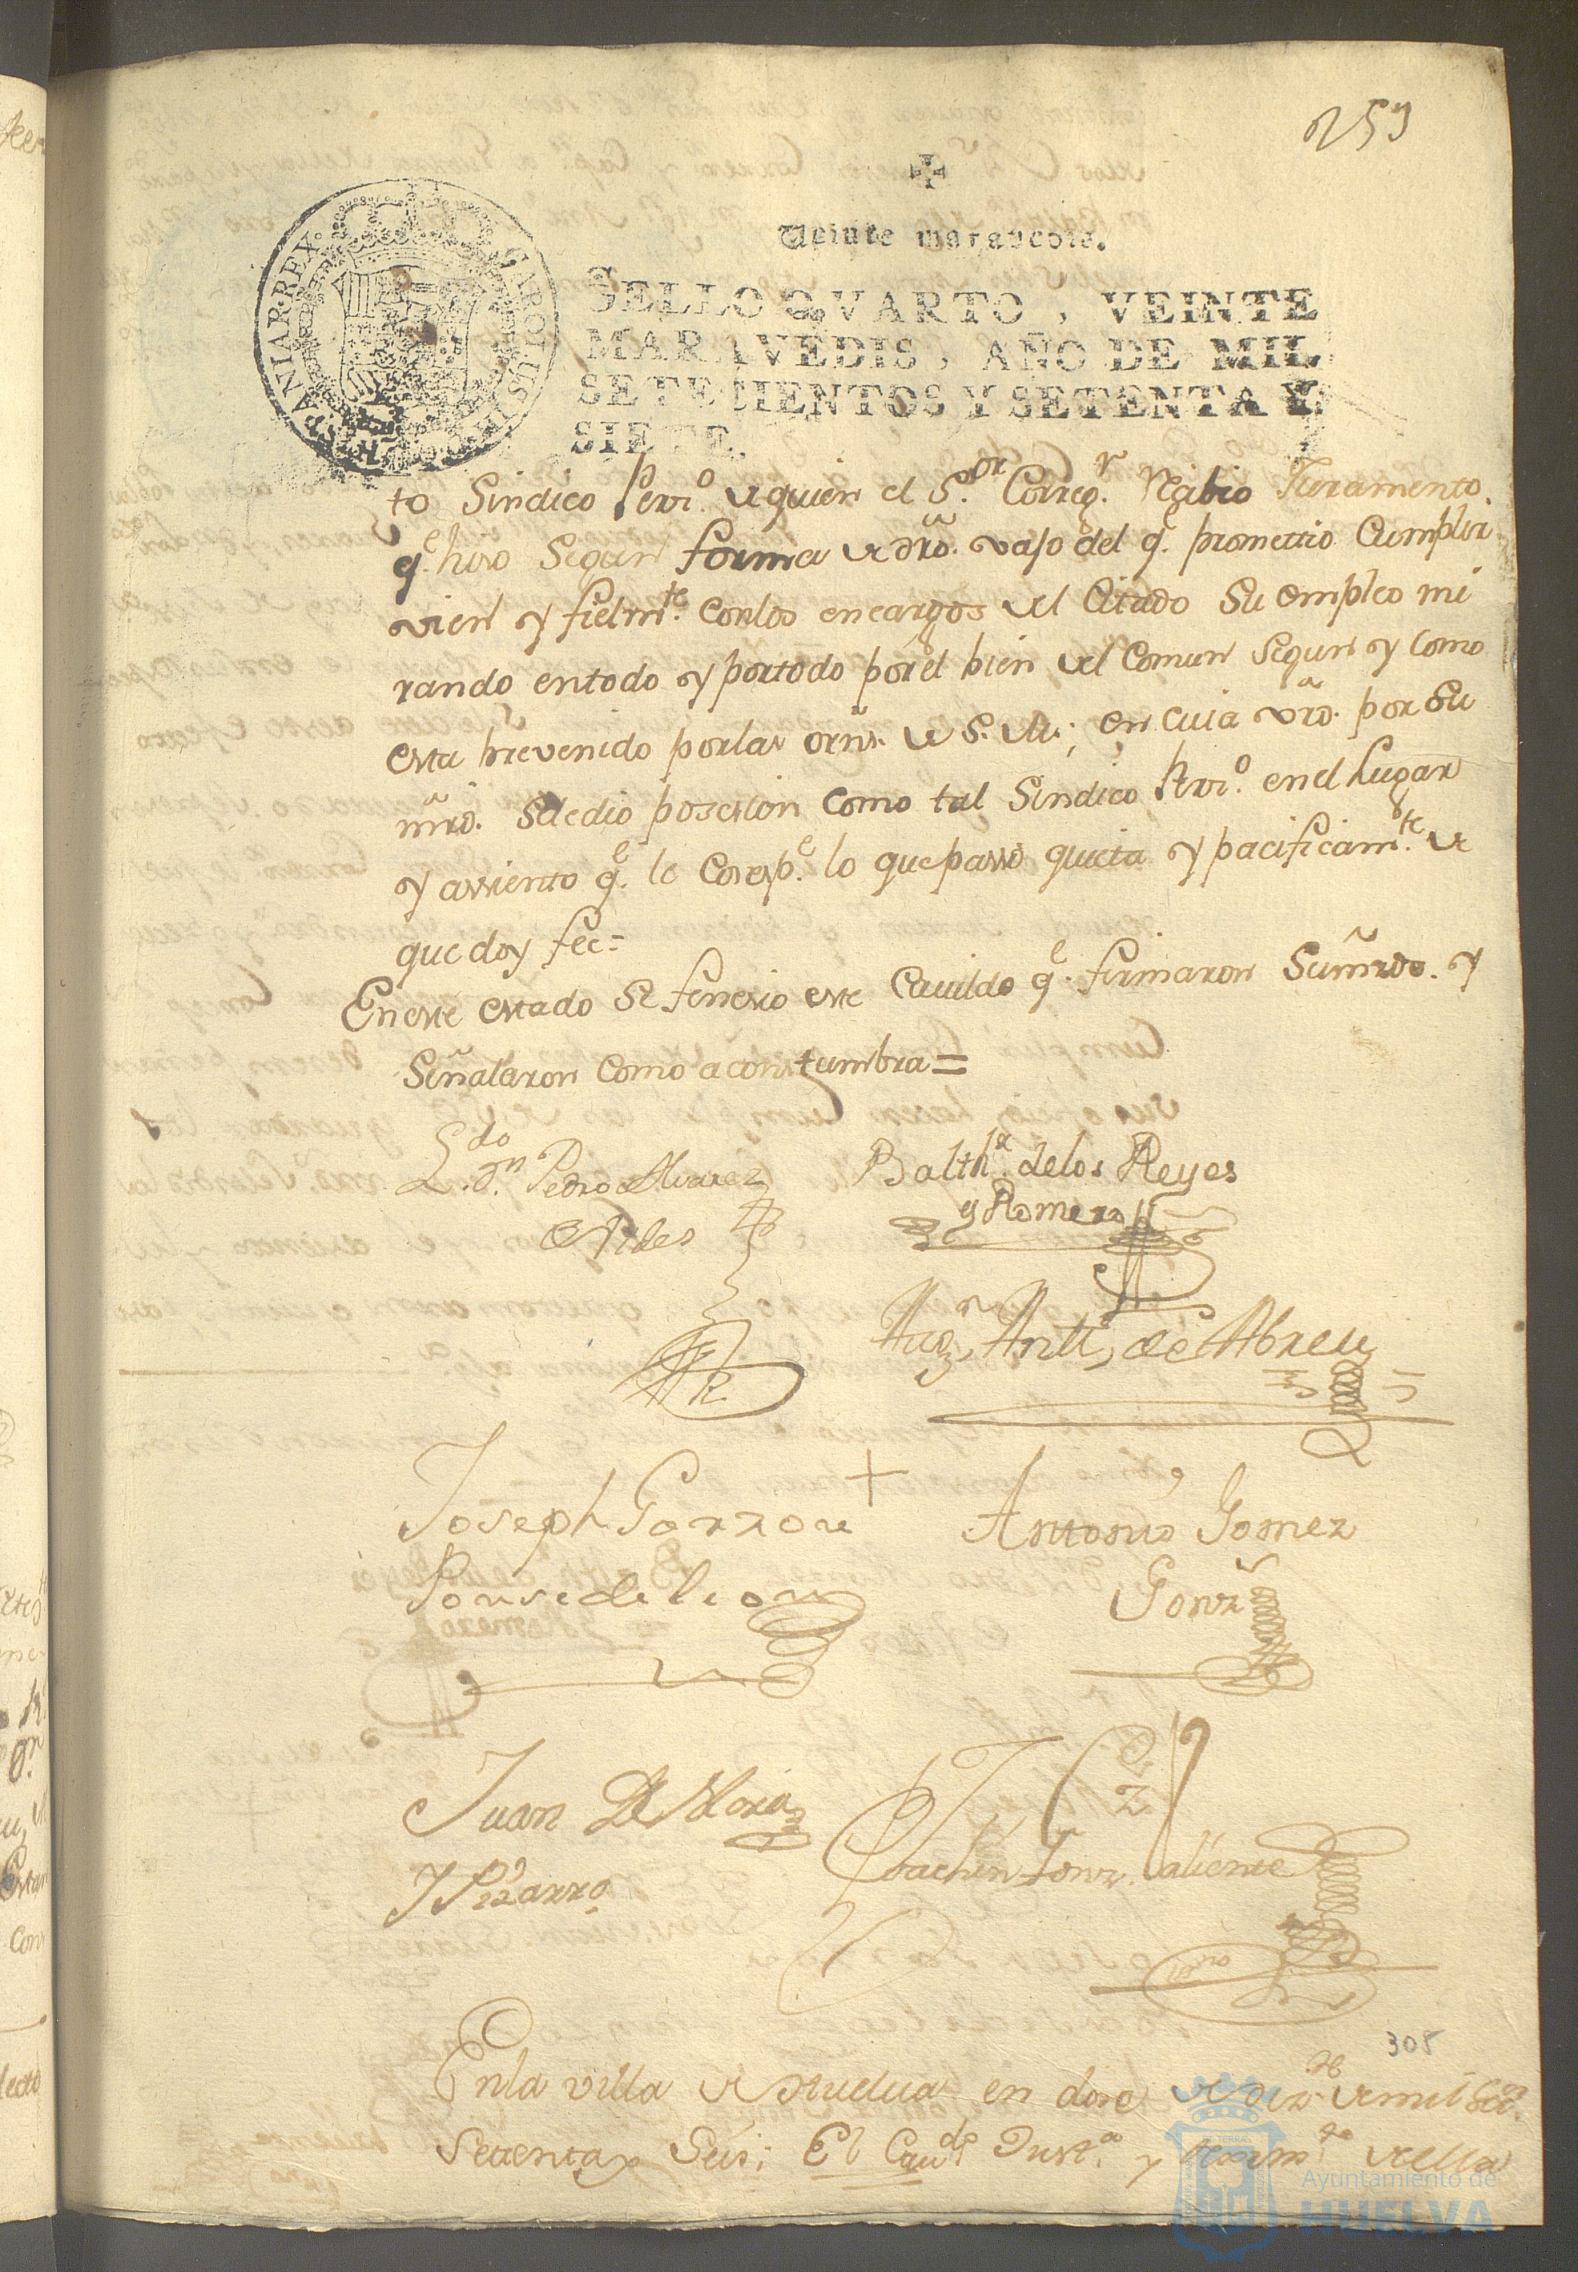 259
Veinte maravedis.
CAROLUS III D G HISPANIAR. REX
SELLO QVARTO, VEINTE
MARAVEDIS, AÑO DE MIL
SETECIENTOS Y SETENTA Y
SIETE.
to Sindico Pervo. de quien el S.or Correg.r Rcibio Juramento
q.e hiso Segun forma de dro. vajo del q. promettio Cumplir
vien y fielm.te conlos encargos del Citado Su empleo mi
rando entodo y portodo por el bien del Comun Segun y Como
esta prevenido porlas orns. de S. M.; en cuia vrd. por Su
mrd. Seledio posesion Como tal Sindico en el Lugar
y assiento q.e le Coresp.e lo que passó quieta y pacificam.te de
que doy fee=
En este estado Se fenesio este Cavildo q.e firmaron Sumrds. y
Señalaron Como acostumbra=
L.do D.n Pedro Alvarez
Balth.r delos Reyes
y Romero
Ant.o de Abreu
Joseph Garzon
Ponse de leon
+
Antonio Gomez
Gonz
Juan De Mora
Y Pizarro
Joachin Gonz. Valiente
305
Enla villa de Huelva en dose de Diz.re de mil Set.s
Setenta y Seis; El Cav.do Just.a y Rexim.to della
Ayuntamiento de
HUELVA